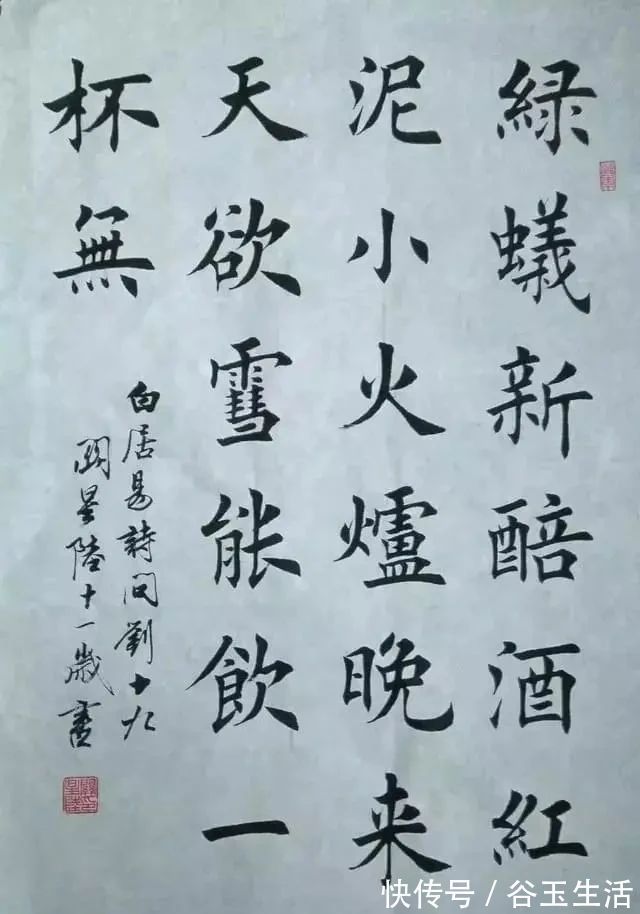 緑蟻新醅酒紅
泥小火爐晚来
天欲雪能飲一
杯無
白居易詩問劉十九
關星陸十一歲書
快传号/谷玉生活